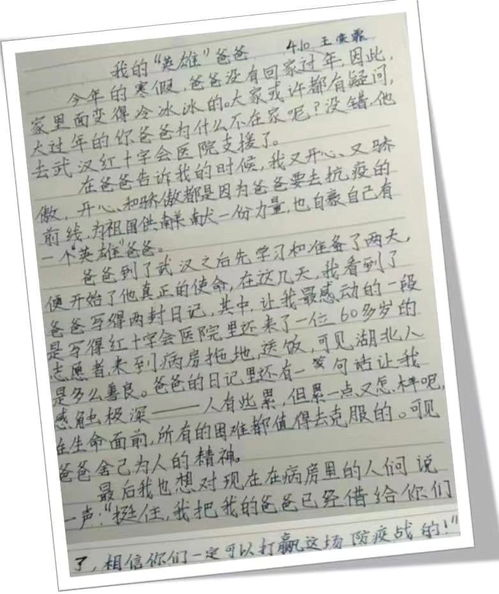 我的“英雄”爸爸 4.10 王
今年的寒假，爸爸没有回家过年，因此，
家里面变得冷冰冰的。大家或许都有疑问，
大过年的你爸爸为什么不在家呢？没错，他
去武汉红十字会医院支援了。
在爸爸告诉我的时候，我又开心、又骄
傲，开心和骄傲都是因为爸爸要去抗疫的
前线，为祖国供献出一份力量，也自豪自己有
一个“英雄”爸爸。
爸爸到了武汉之后先学习和准备了两天，
便开始了他真正的使命，在这几天，我看到了
爸爸写得两封日记，其中，让我最感动的一段
是写得红十字会医院里还来了一位60多岁的
志愿者来到病房拖地，送饭，可见湖北人
是多么善良。爸爸的日记里还有一句话让我
感触极深——人有些累，但累一点又怎么样呢，
在生命面前，所有的困难都值得去克服的。可见
爸爸舍己为人的精神。
最后我也想对现在在病房里的人们说
一声：“挺住，我把我的爸爸已经借给你们
了，相信你们一定可以打赢这场防疫战的！”